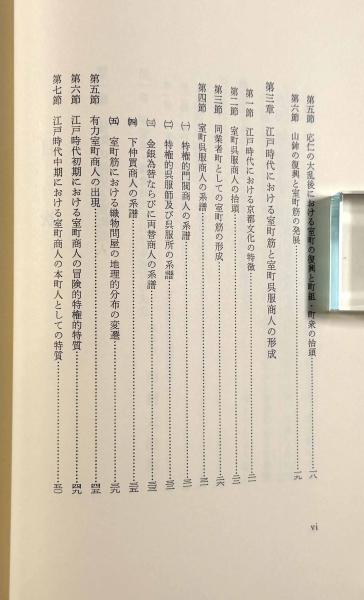 第五節 応仁の大乱後における室町の復興と町組・町衆の抬頭……一八
第六節 山鉾の復興と室町筋の発展……一九
第三章 江戸時代における室町筋と室町呉服商人の形成
第一節 江戸時代における京都文化の特徴……二一
第二節 室町呉服商人の抬頭……二三
第三節 同業者町としての室町筋の形成……二六
第四節 室町呉服商人の系譜……三一
(一) 特権的門閥商人の系譜……三一
(二) 特権的呉服師及び呉服所の系譜……三二
(三) 金銀為替ならびに両替商人の系譜……三三
(四) 下仲買商人の系譜……三五
(五) 室町筋における織物問屋の地理的分布の変遷……三九
第五節 有力室町商人の出現……四五
第六節 江戸時代初期における室町商人の冒険的特権的特質……四九
第七節 江戸時代中期における室町商人の本町人としての特質……五〇
vi